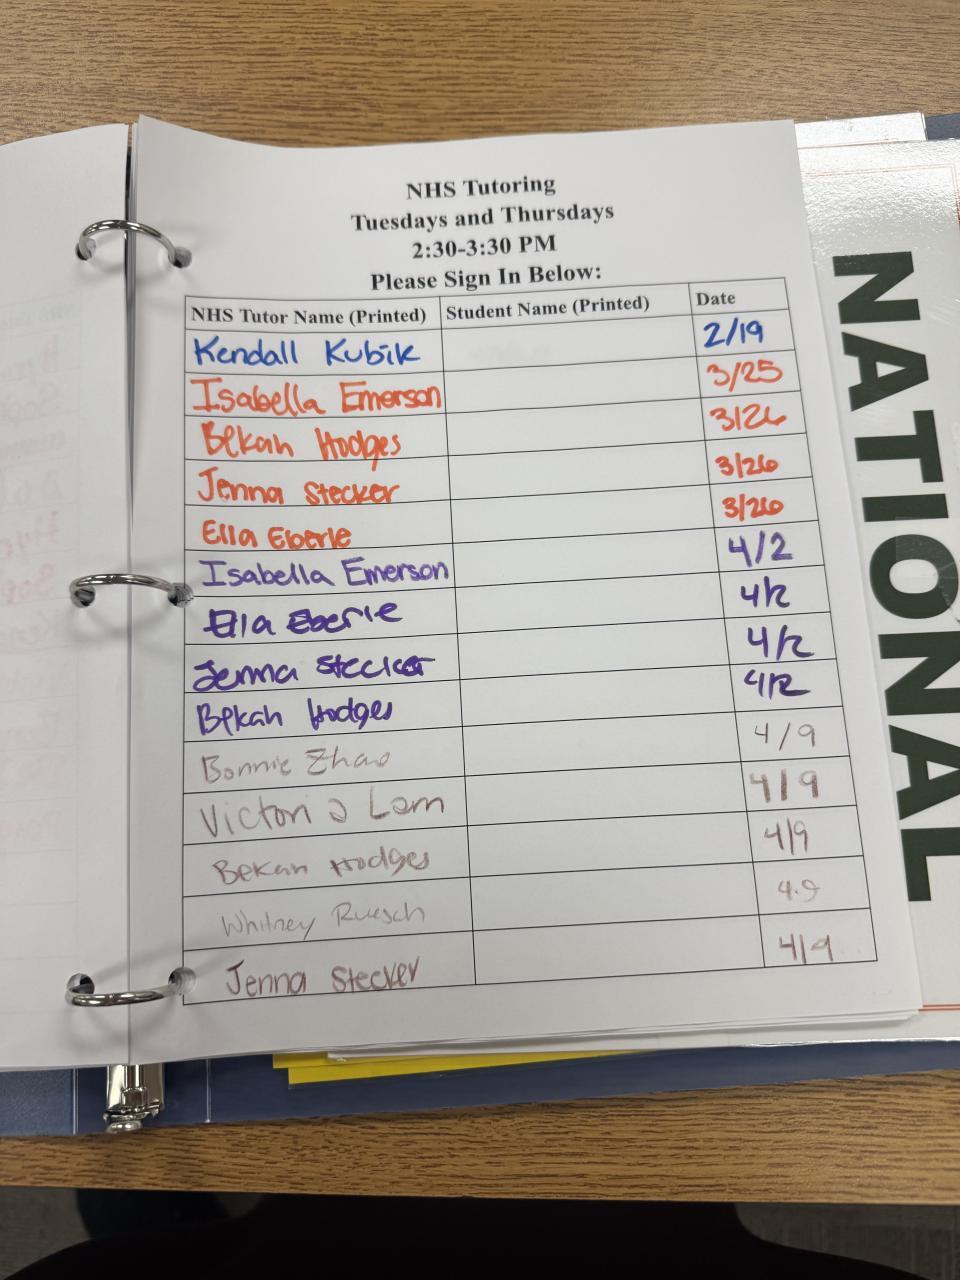 NHS Tutoring
Tuesdays and Thursdays
2:30-3:30 PM
Please Sign In Below:
NHS Tutor Name (Printed) Student Name (Printed) Date
Kendall Kubik 2/19
Isabella Emerson 3/25
Bekah Hodges 3/26
Jenna Stecker 3/26
Ella Eberle 3/26
Isabella Emerson 4/2
Ella Eberle 4/2
Jenna Stecker 4/2
Bekah Hodges 4/2
Bonnie Zhao 4/9
Victoria Lam 4/9
Bekah Hodges 4/9
Whitney Ruesch 4.9
Jenna Stecker 4/9
NATIONAL